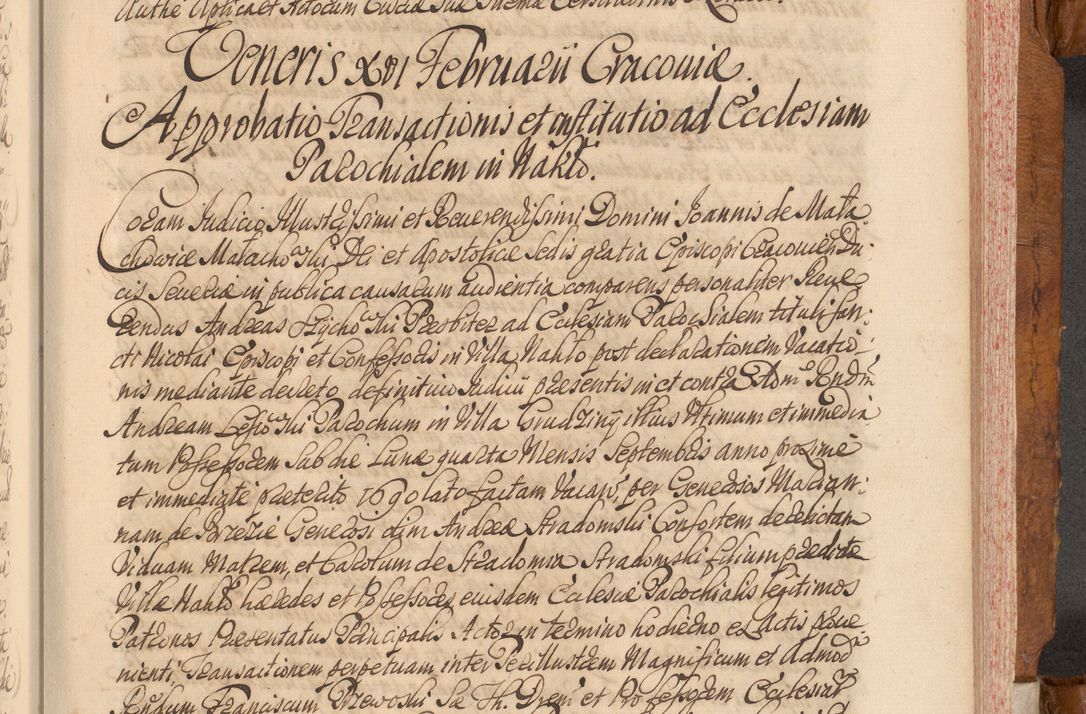 Veneris XVI Februarii Cracoviæ.
Approbatio Transactionis et institutio ad Ecclesiam
Parochialem in Nakło.
Coram Iudicio Illustrissimi et Reverendissimi Domini Ioannis de Mała
chowice Małachowski, Dei et Apostolicæ Sedis gratia Episcopi Cracovien Du-
cis Severiæ in publica causarum audientia comparens personaliter Reve
rendus Andreas Presbiter ad Ecclesiam Parochialem tituli San-
cti Nicolai Episcopi et Confessoris in Villa Nakło post declarationem Vacatio-
nis mediante decreto definitivo Iudicii præsentis in et contra Adm Rndm
Andream Parochum in Villa Grudziny illius Ultimum et immedia
tum Possessorem Sab die Lunæ quarta Mensis Septembris anno proxime
et immediate præterito 1690 lato factam Vacan, per Generosos Marian-
nam de Brzezie Generosi olim Andreæ Stradomski Consortem derelictam
Viduam Matrem, et Carolum de Stradomia Stradomski filium prædictæ
Villæ Nakło hæredes et Possessores eiusdem Ecclesiæ Parochialis legitimos
Patronos Præsentatus Principalis Actor in termino hodierno ex Actis prove-
nienti, Transactionem perpetuam inter Perillustrem Magnificum et Admod
Rndum Franciscum Przewoski Sæ Th. et Professorem Ecclesiar